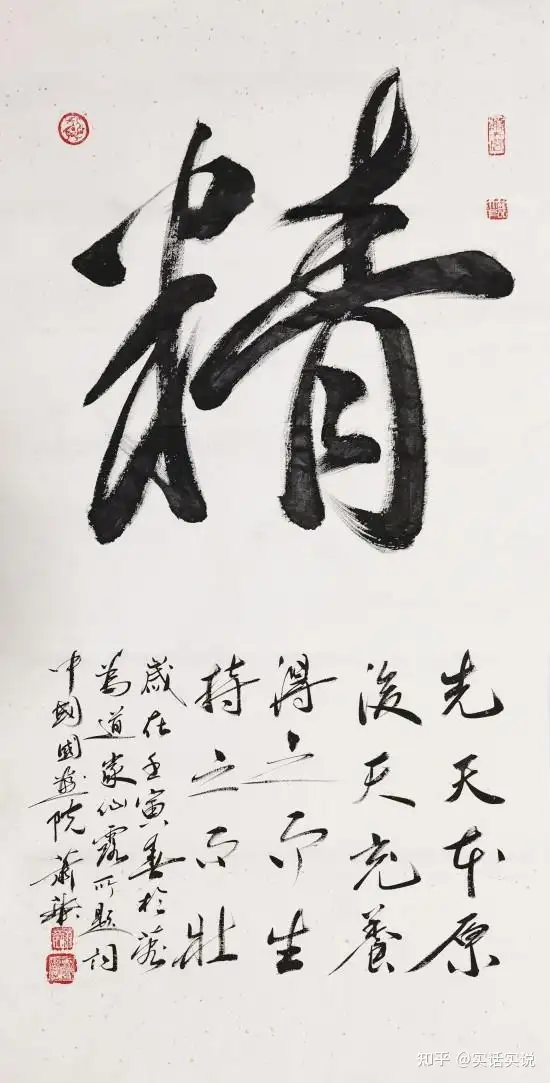 精
先天本原
後天充養
得之而生
持之而壯
歲在壬寅春於
為道家仙露所題詞
中國國畫院蕭
知乎 @实话实说